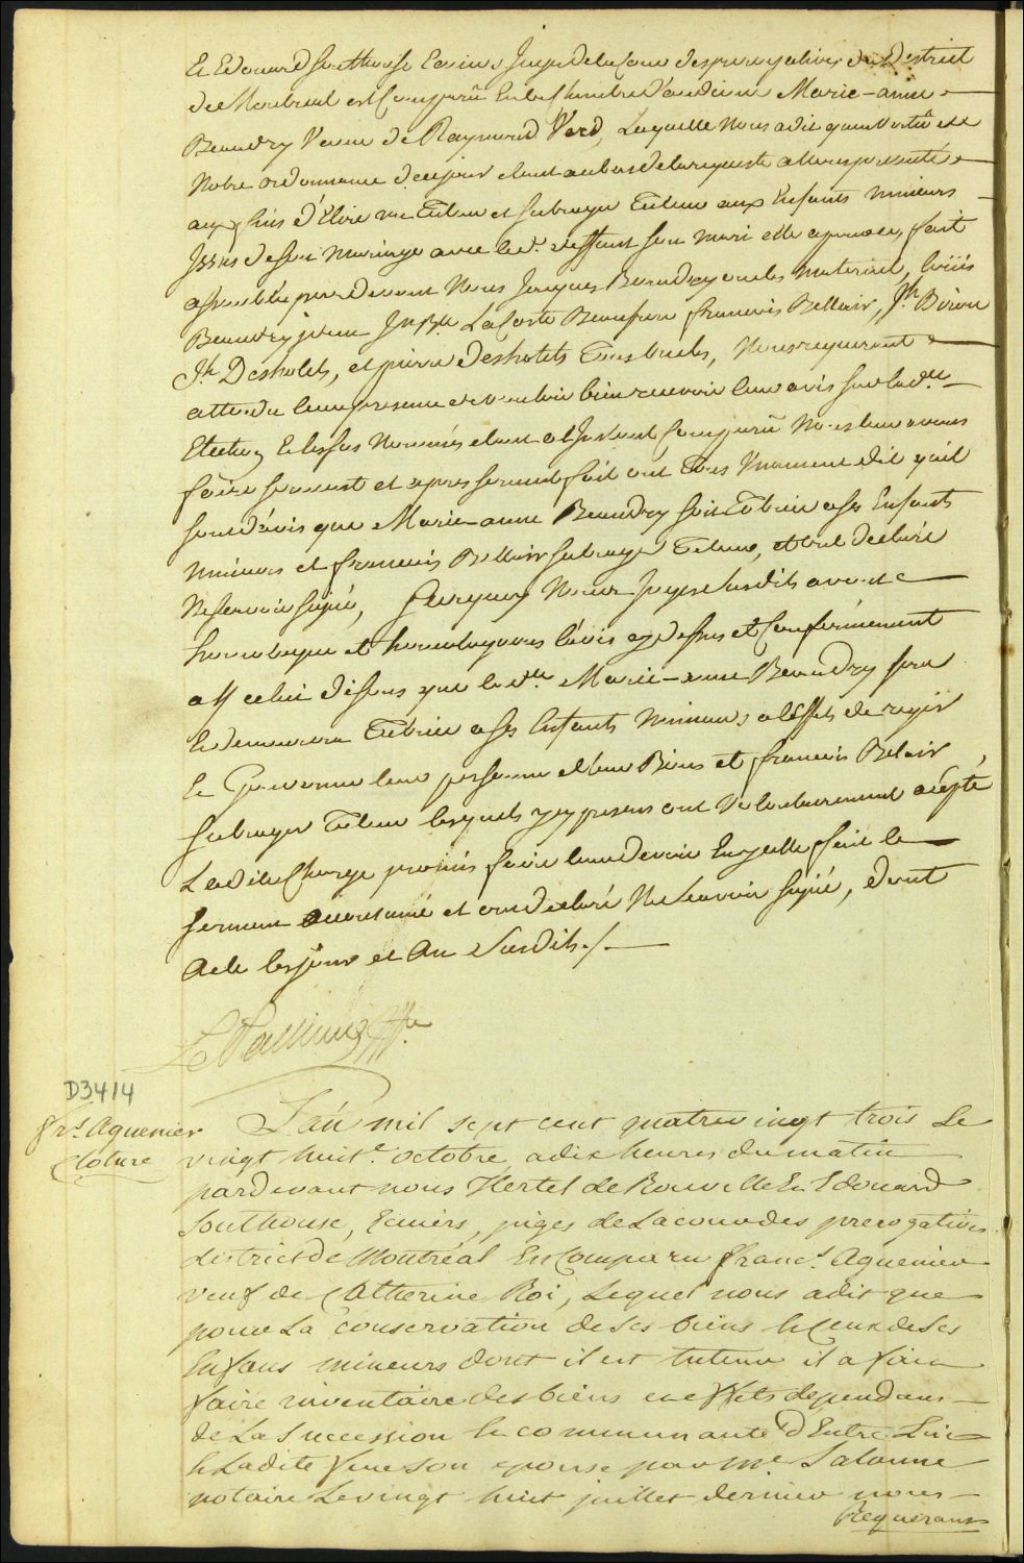 Et Edouard Southouse Ecuiers Juges de la Cour des prerogatives du District
de Montreal est Comparu En la Chambre d'audience Marie-anne
Beaudry Veuve de Raymond Verd, Laquelle Nous a dit qu'en Vertû de
Notre ordonnance de ce jour etant au bas de la requeste a Nous presentée
aux fins d'Elire un Tuteur et subroger Tuteur aux Enfants mineurs
Issus de son Mariage avec le dt. deffunt son mari elle a pour ce fait
assemblée pardevant Nous Jacques Beaudry oncle maternel, Loüis
Beaudry Jn Bte LaCoste Beaufrere francois Bellair, Jh. Biron
Jh. Deshotels, et pierre Deshotels Tous oncles, Nous requerant
attendu leur presence de vouloir bien recevoir leur avis sur la dte.
Election Et les sus Nommés etant a l'Instant Comparû Nous leur avons
faire serment et apres serment fait ont Tous Unanimement dit qu'il
sont d'avis que Marie-anne Beaudry soit Tutrice a ses Enfants
mineurs et francois Bellair subroger Tuteur, et ont declaré
Ne savoir signé, Surquoy Nous Juges susdits avons
homologué et homologuons l'avis cy dessus et Conformement
a Icelui disons que la dte. Marie-anne Beaudry sera
Et demeurera Tutrice a ses Enfants Mineurs a l'Effet de regir
Et Gouverner leur personne et leur Biens et francois Belair
subroger Tuteur lesquels icy presens ont Volontairement acépté
Ladite Charge promis faire leur devoir En icelle fait le
serment accoutumé et ont declaré Ne savoir signé, dont
Acte les jour et An Susdits ./.
D3414
frs. Aguenier
Cloture
L'an mil sept cent quatrevingt trois Le
vingt huit. octobre a dix heures du matin
pardevant nous Hertel de Rouville Et Edouard
Southouse, Ecuiers, juges de La cour des prerogatives
district de Montréal Est Comparu Franc.s Aguenier
veuf de Catherine Roi, Lequel nous a dit que
pour La conservation de ses biens Et Ceux de ses
Enfans mineurs dont il est tuteur il a fait
faire inventaire des biens et effets dependans
de La Succession Et communauté d'Entre Lui
Et Ladite feue Son epouse par Me. Lalanne
notaire Le vingt huit juillet dernier nous
Requerant